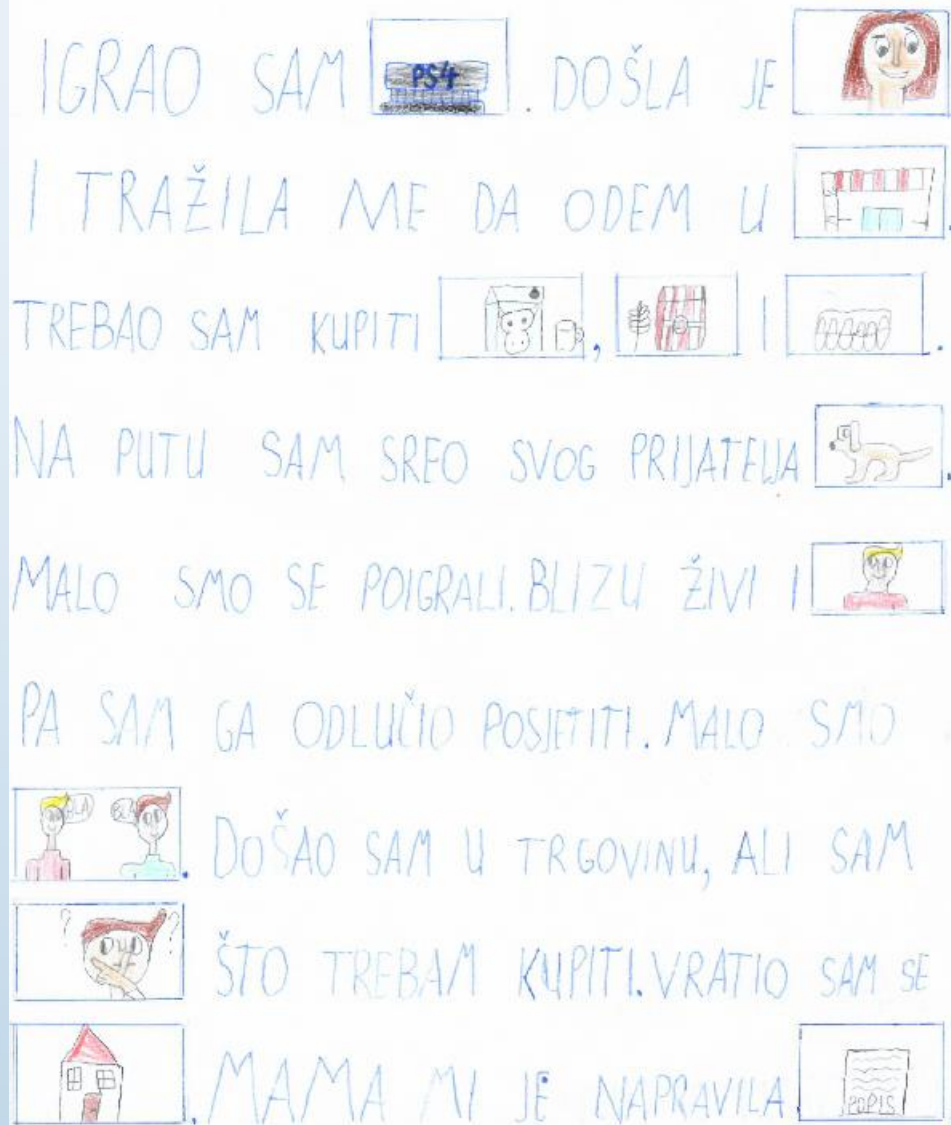 IGRAO SAM PS4 . DOŠLA JE
I TRAŽILA ME DA ODEM U .
TREBAO SAM KUPITI , I .
NA PUTU SAM SREO SVOG PRIJATELJA .
MALO SMO SE POIGRALI. BLIZU ŽIVI I
PA SAM GA ODLUČIO POSJETITI. MALO SMO
BLA BLA . DOŠAO SAM U TRGOVINU, ALI SAM
? ? ŠTO TREBAM KUPITI. VRATIO SAM SE
. MAMA MI JE NAPRAVILA POPIS